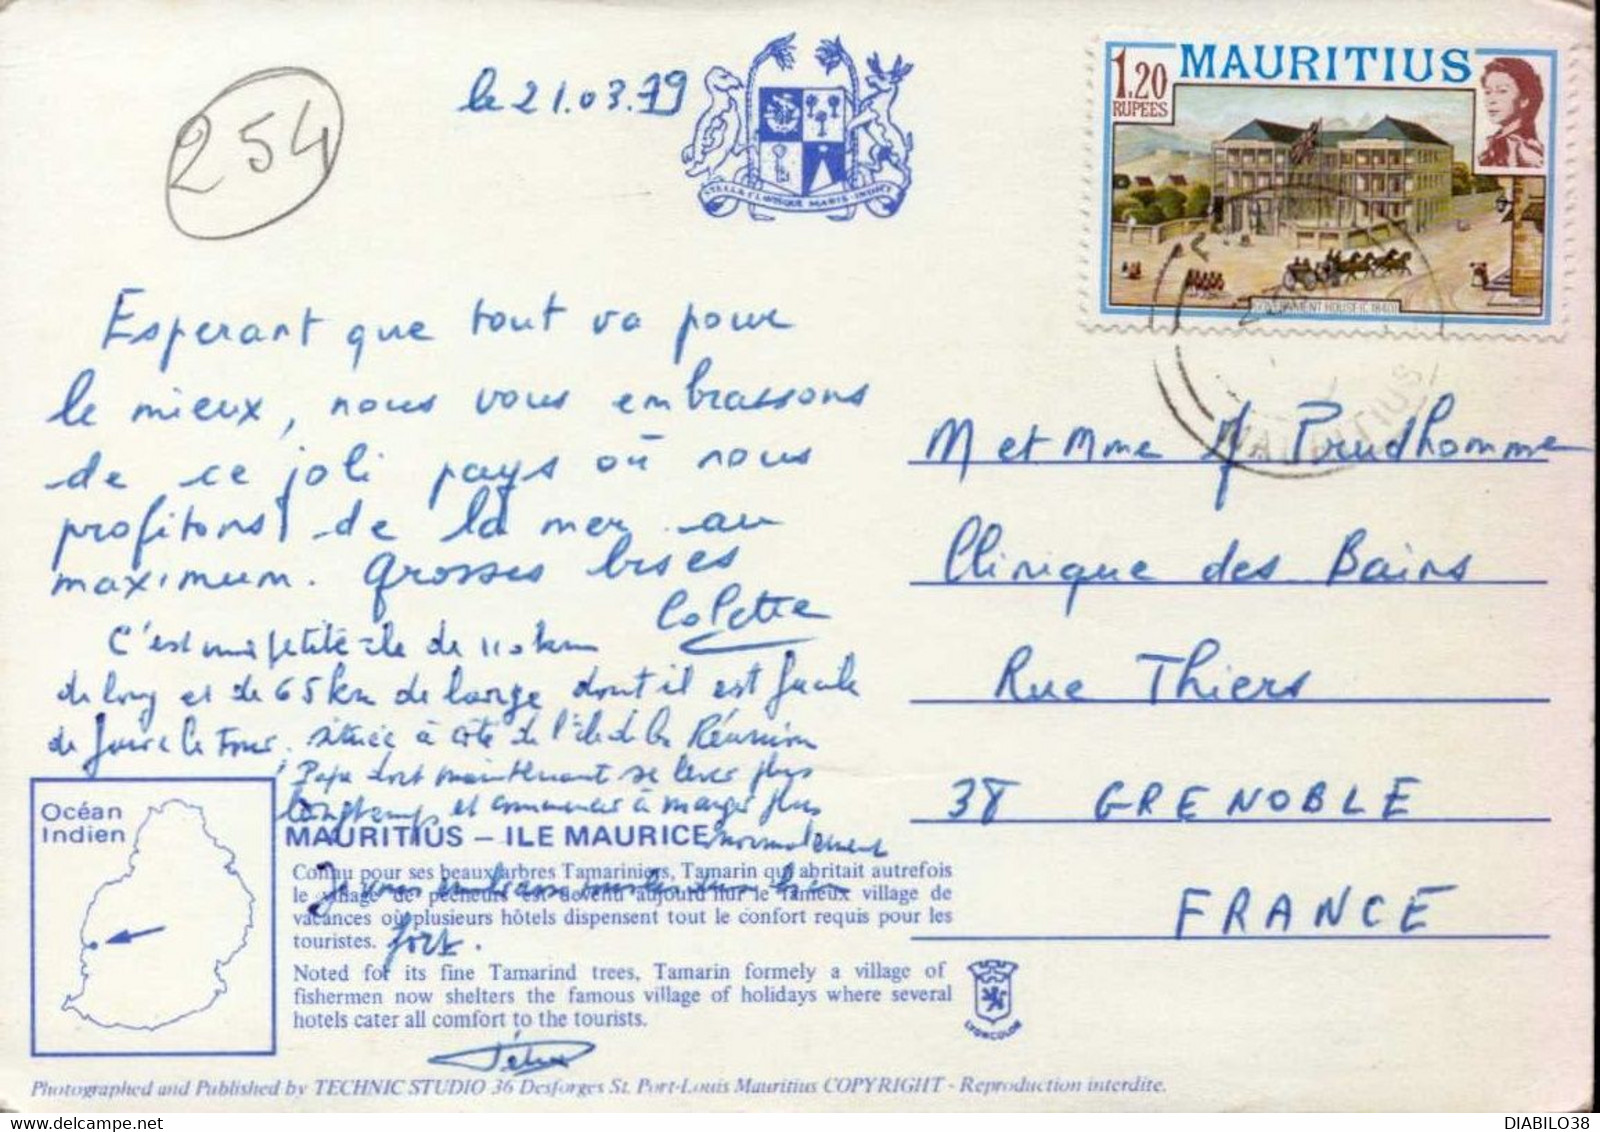 254
le 21.03.79
STELLA CLAVISQUE MARIS INDICI
1.20
RUPEES
MAURITIUS
GOVERNMENT HOUSE (C.1840)
MAURITIUS
Esperant que tout va pour
le mieux, nous vous embrassons
de ce joli pays où nous
profitons de la mer au
maximum. Grosses bises
Colette
C'est une petite île de 110 km
de long et de 65 km de large dont il est facile
de faire le tour, située à côté de l'île de la Réunion
Papa doit maintenant se lever plus
longtemps et commencer à manger plus
normalement
Je vous embrasse tous les deux bien
fort.
Félix
M et Mme Prudhomme
Clinique des Bains
Rue Thiers
38 GRENOBLE
FRANCE
Océan
Indien
MAURITIUS – ILE MAURICE
Connu pour ses beaux arbres Tamariniers, Tamarin qui abritait autrefois
le village de pêcheurs est devenu aujourd'hui le fameux village de
vacances où plusieurs hôtels dispensent tout le confort requis pour les
touristes.
Noted for its fine Tamarind trees, Tamarin formely a village of
fishermen now shelters the famous village of holidays where several
hotels cater all comfort to the tourists.
LYONCOLOR
Photographed and Published by TECHNIC STUDIO 36 Desforges St. Port-Louis Mauritius COPYRIGHT - Reproduction interdite.
DIABILO38